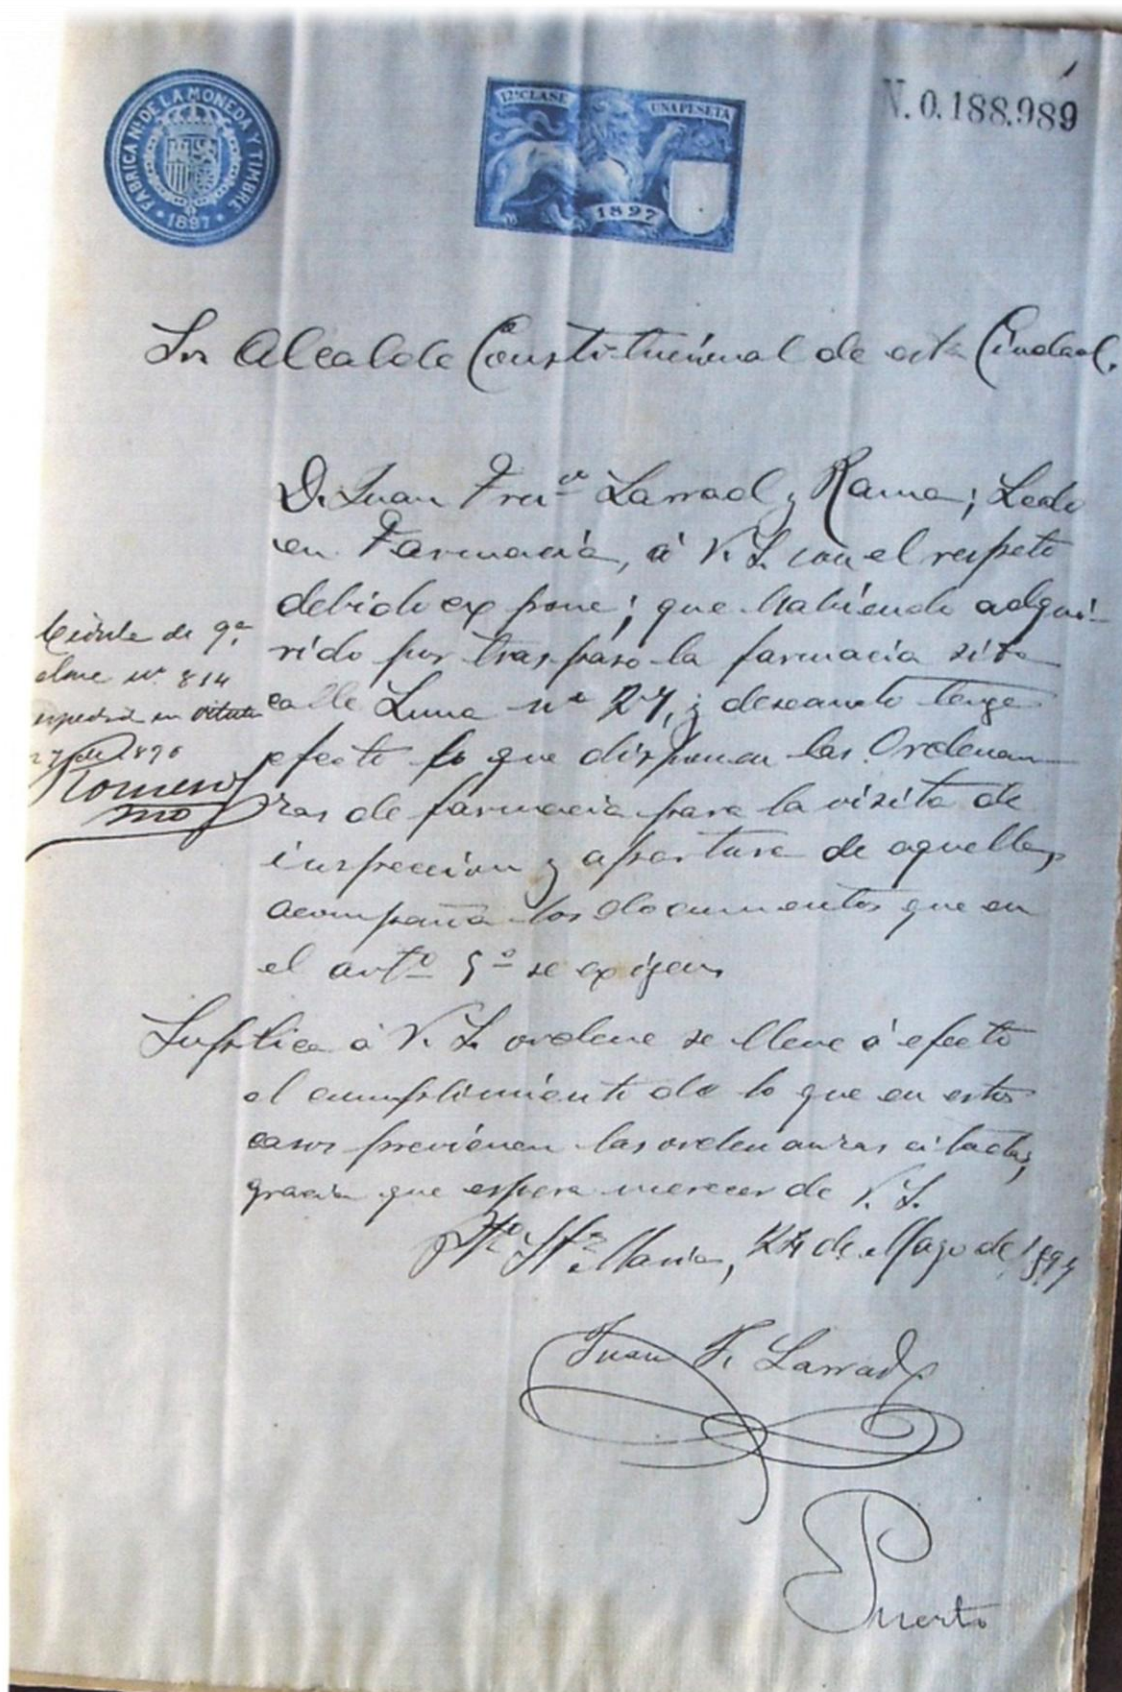 FABRICA Nl. DE LA MONEDA Y TIMBRE
1897
12ª CLASE
UNA PESETA
1897
N.0.188.989
Sr Alcalde Constitucional de esta Ciudad.
D. Juan Franco Larrad y Rama; Ledo
en Farmacia, á V. S. con el respeto
debido expone; que habiendo adqui-
rido por traspaso la farmacia sita
calle Luna nº 27, y deseando tenga
efecto lo que disponen las Ordenan-
zas de farmacia para la visita de
inspeccion y apertura de aquella,
acompaña los documentos que en
el artº 5º se exigen
Suplica á V. S. ordene se lleve á efecto
el cumplimiento de lo que en estos
casos previenen las ordenanzas citadas,
gracia que espera merecer de V. S.
Pto Sta Maria, 24 de Mayo de 1897
Cédula de 9ª
clase nº 814
expedida en
27 de 1896
Romero
Juan F. Larrad
Puerto